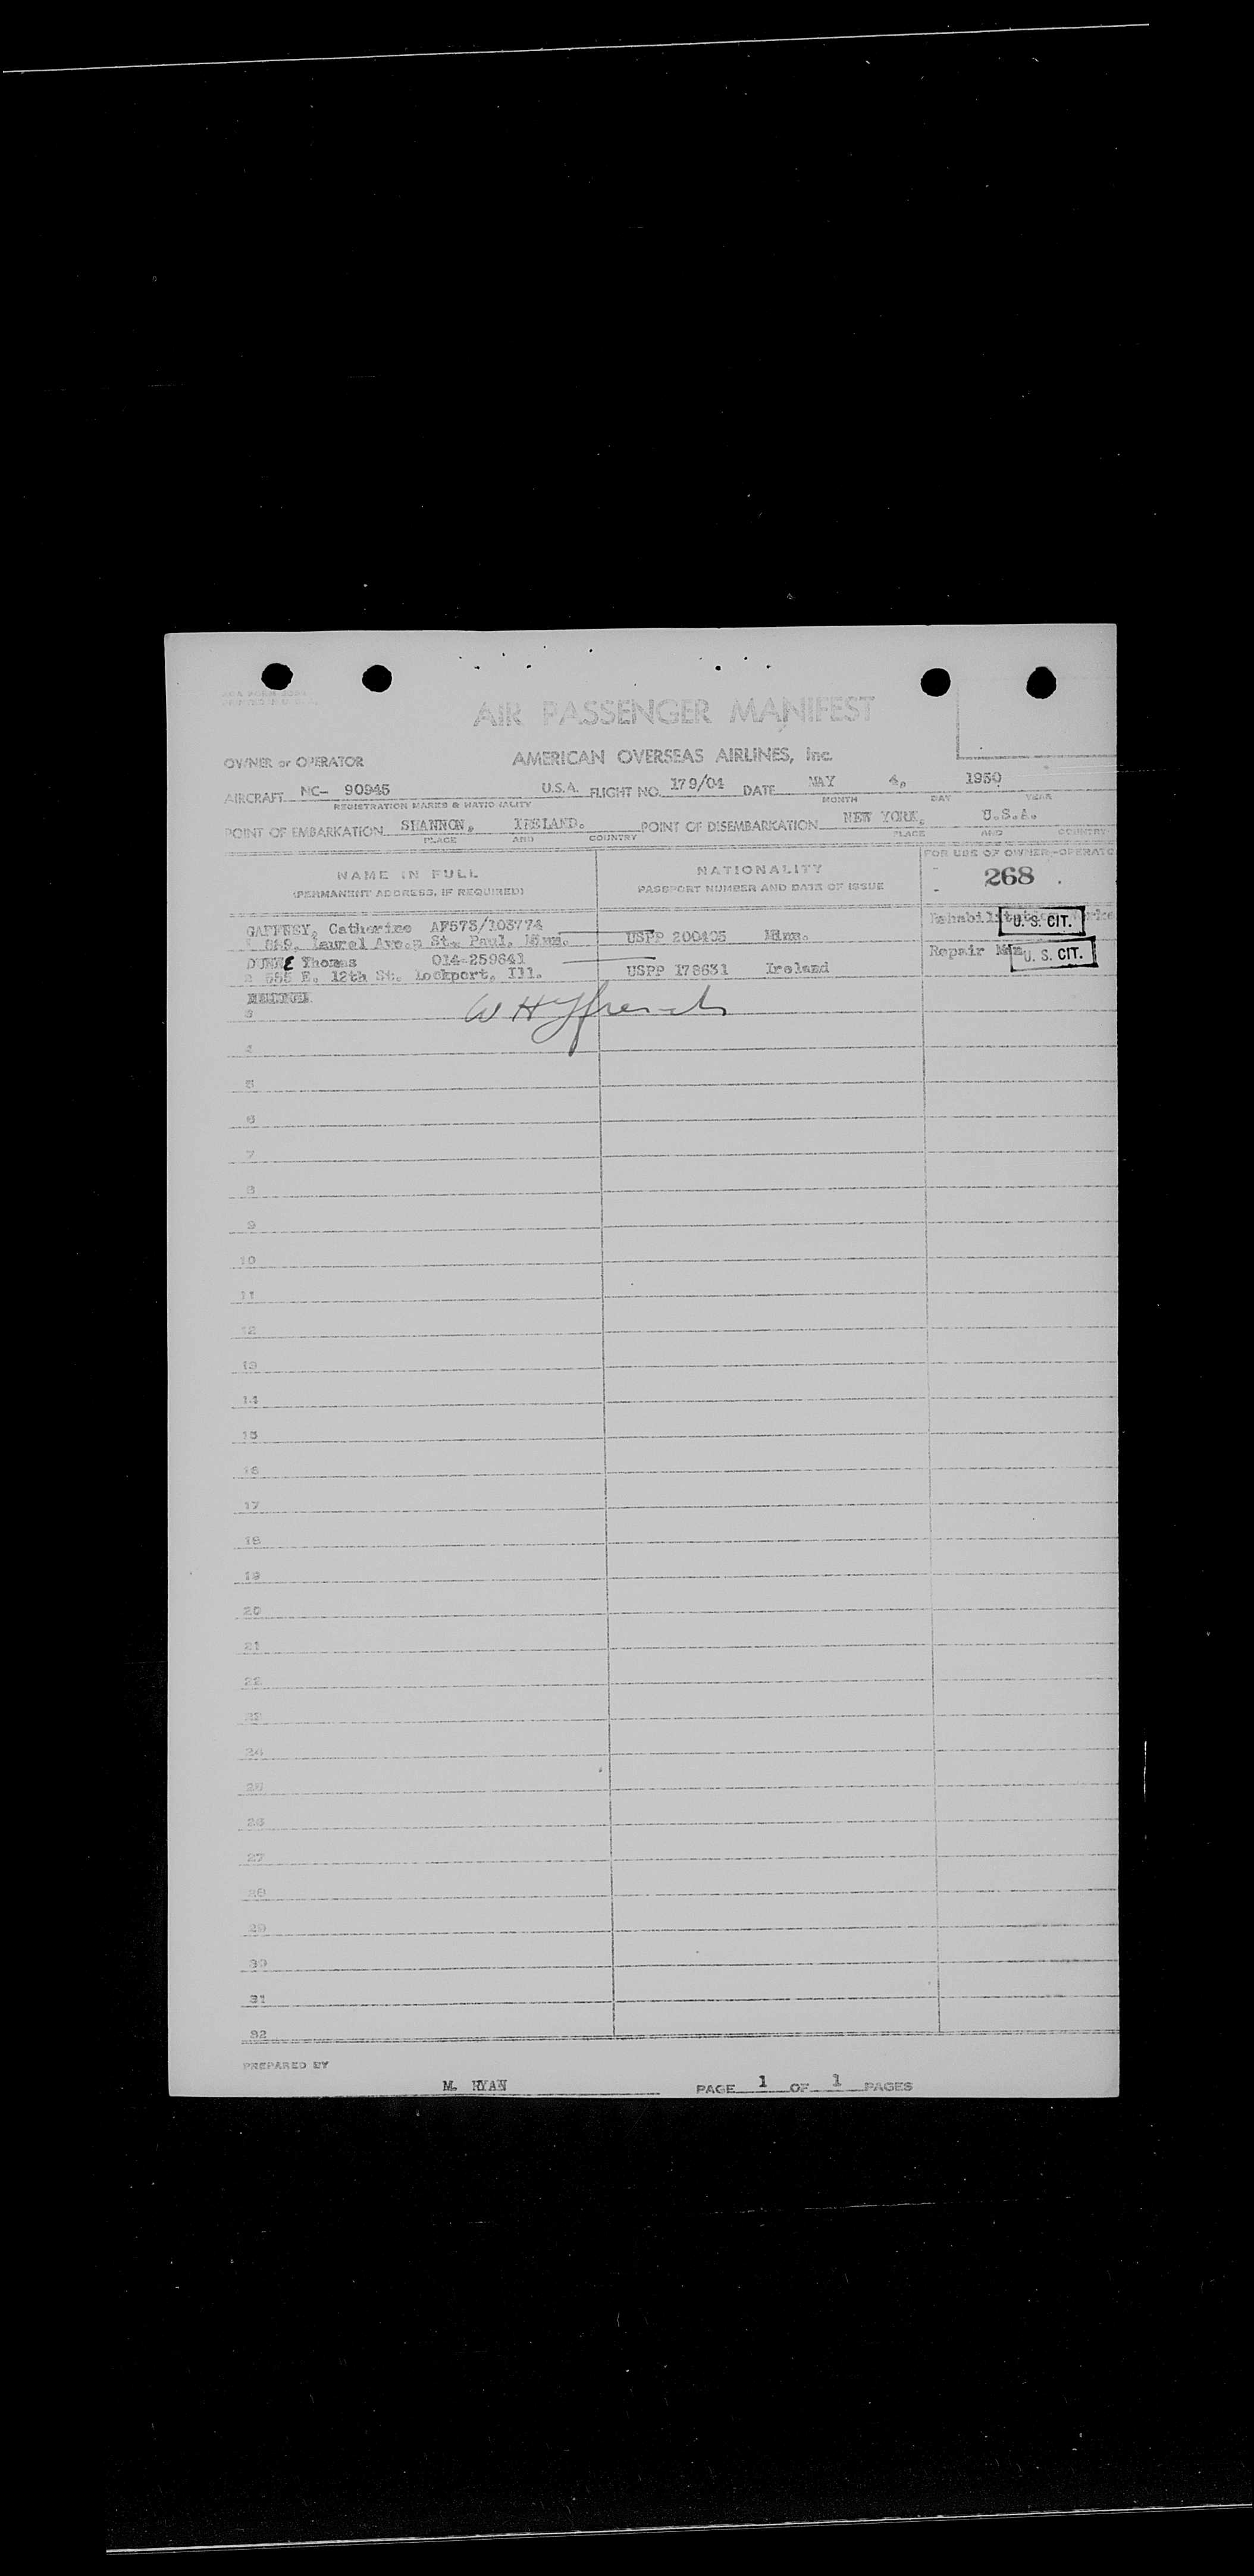 AIR PASSENGER MANIFEST
OWNER or OPERATOR AMERICAN OVERSEAS AIRLINES, Inc.
AIRCRAFT NC- 90945 U.S.A. FLIGHT NO. 179/04 DATE MAY 4, 1950
REGISTRATION MARKS & NATIONALITY MONTH DAY YEAR
POINT OF EMBARKATION SHANNON, IRELAND. POINT OF DISEMBARKATION NEW YORK, U.S.A.
PLACE AND COUNTRY PLACE AND COUNTRY
NAME IN FULL NATIONALITY FOR USE OF OWNER-OPERATO
(PERMANENT ADDRESS, IF REQUIRED) PASSPORT NUMBER AND DATE OF ISSUE 268
GAFFNEY, Catherine AF573/103774 U. S. CIT.
1 Laurel Ave., St. Paul, Minn. USPP 200405 Minn.
DUNNE Thomas 014-259841 Repair Man U. S. CIT.
2 555 E. 12th St. Lockport, Ill. USPP 178631 Ireland
3
4
5
6
7
8
9
10
11
12
13
14
15
16
17
18
19
20
21
22
23
24
25
26
27
28
29
30
31
32
PREPARED BY
M. RYAN PAGE 1 OF 1 PAGES